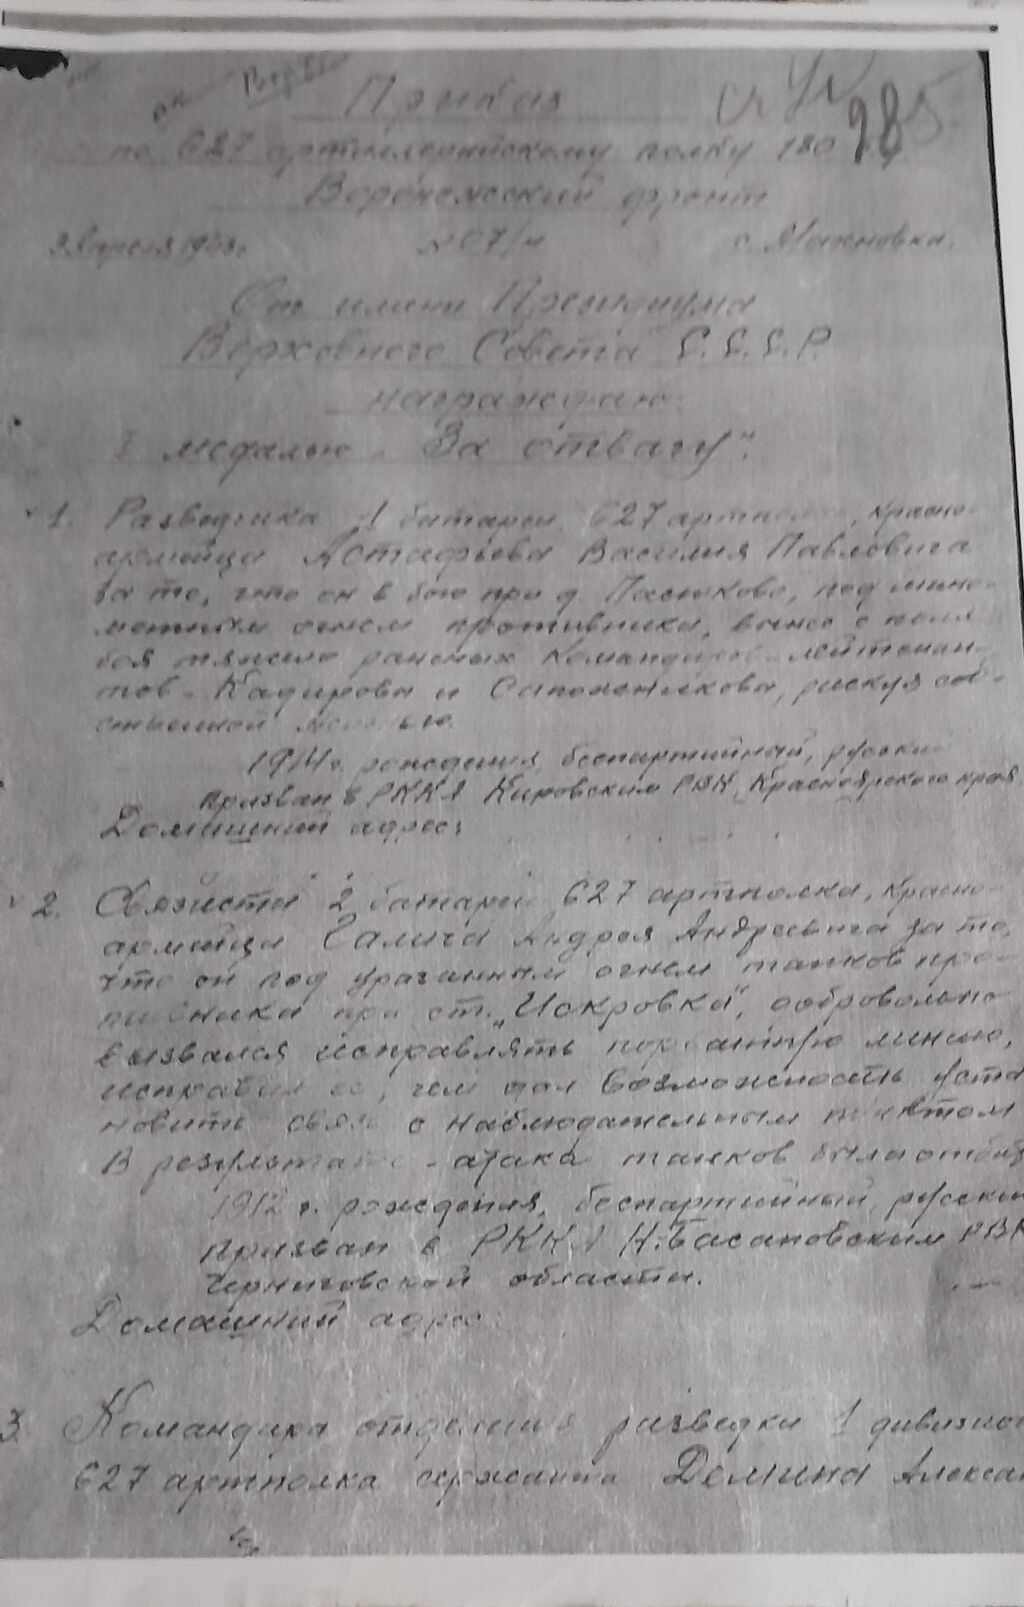 Приказ
по 627 артиллерийскому полку 180
285
Воронежский фронт
апреля 1943г. №07/н с. Махновка.
От имени Президиума
Верховного Совета С.С.С.Р.
награждаю:
I медалью „За отвагу":
1. Разведчика 1 батареи 627 артполка, красно-
армейца Астафьева Василия Павловича
за то, что он в бою при д. Пасюково, под мино-
метным огнем противника, вынес с поля
боя тяжело раненых командиров - лейтенан-
тов - Кадирова и Сапоженикова, рискуя соб-
ственной жизнью.
1914г. рождения, беспартийный, русский
призван в РККА Кировским РВК, Красноярского края.
Домашний адрес:
2. Связиста 2 батареи 627 артполка, красно-
армейца Галича Андрея Андреевича за то,
что он под ураганным огнем танков про-
тивника при ст. „Искровка", добровольно
вызвался исправлять порванную линию,
исправил ее, чем дал возможность уста
новить связь с наблюдательным пунктом
В результате - атака танков была отбита
1912 г. рождения, беспартийный, русский
призван в РККА Н. Басановским РВК
Черниговской области.
Домашний адрес:
3. Командира отделения разведки 1 дивизион
627 артполка сержанта Демина Алексан